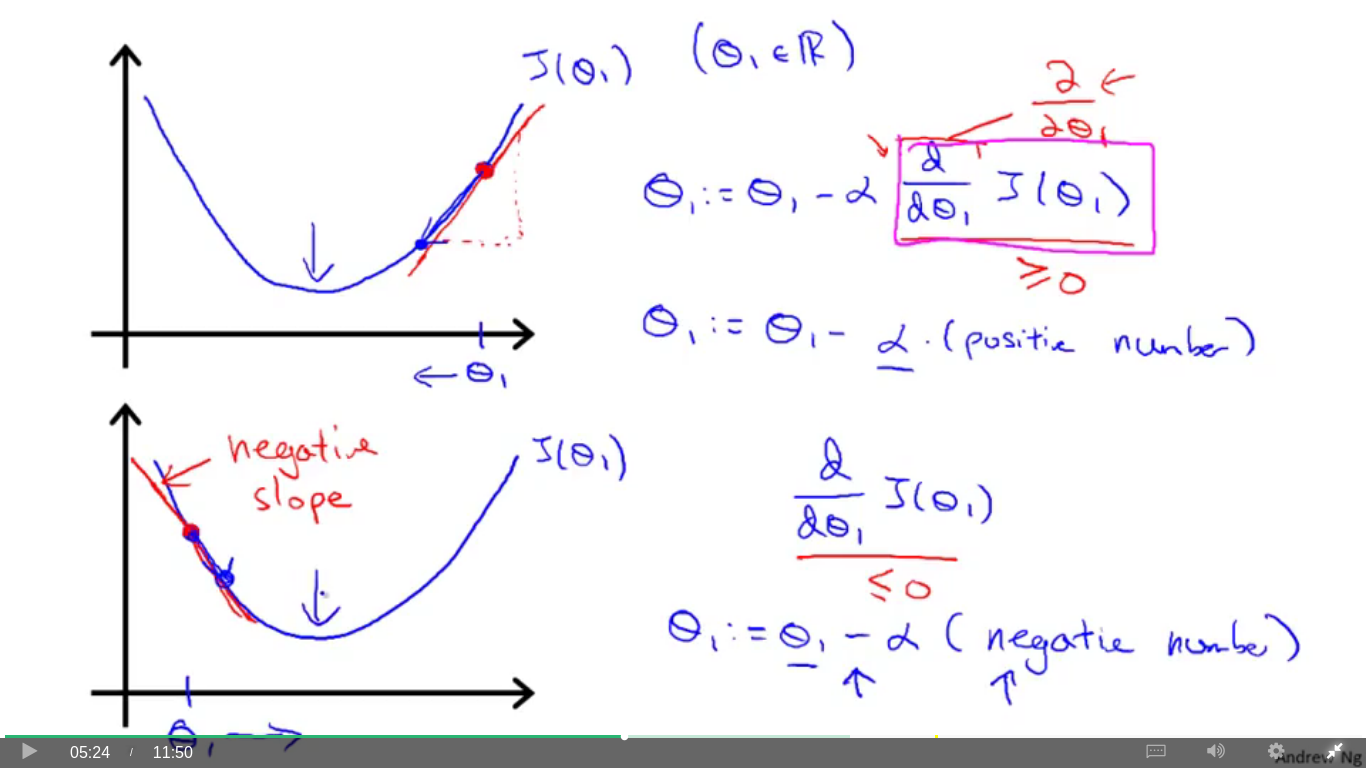 J(θ₁) (θ₁ ∈ ℝ)
∂/∂θ₁ ←
θ₁ := θ₁ - α d/dθ₁ J(θ₁)
≥ 0
θ₁ := θ₁ - α · (positive number)
← θ₁
negative
slope
J(θ₁)
d/dθ₁ J(θ₁)
≤ 0
θ₁ := θ₁ - α (negative number)
θ₁ →
05:24 / 11:50
Andrew Ng